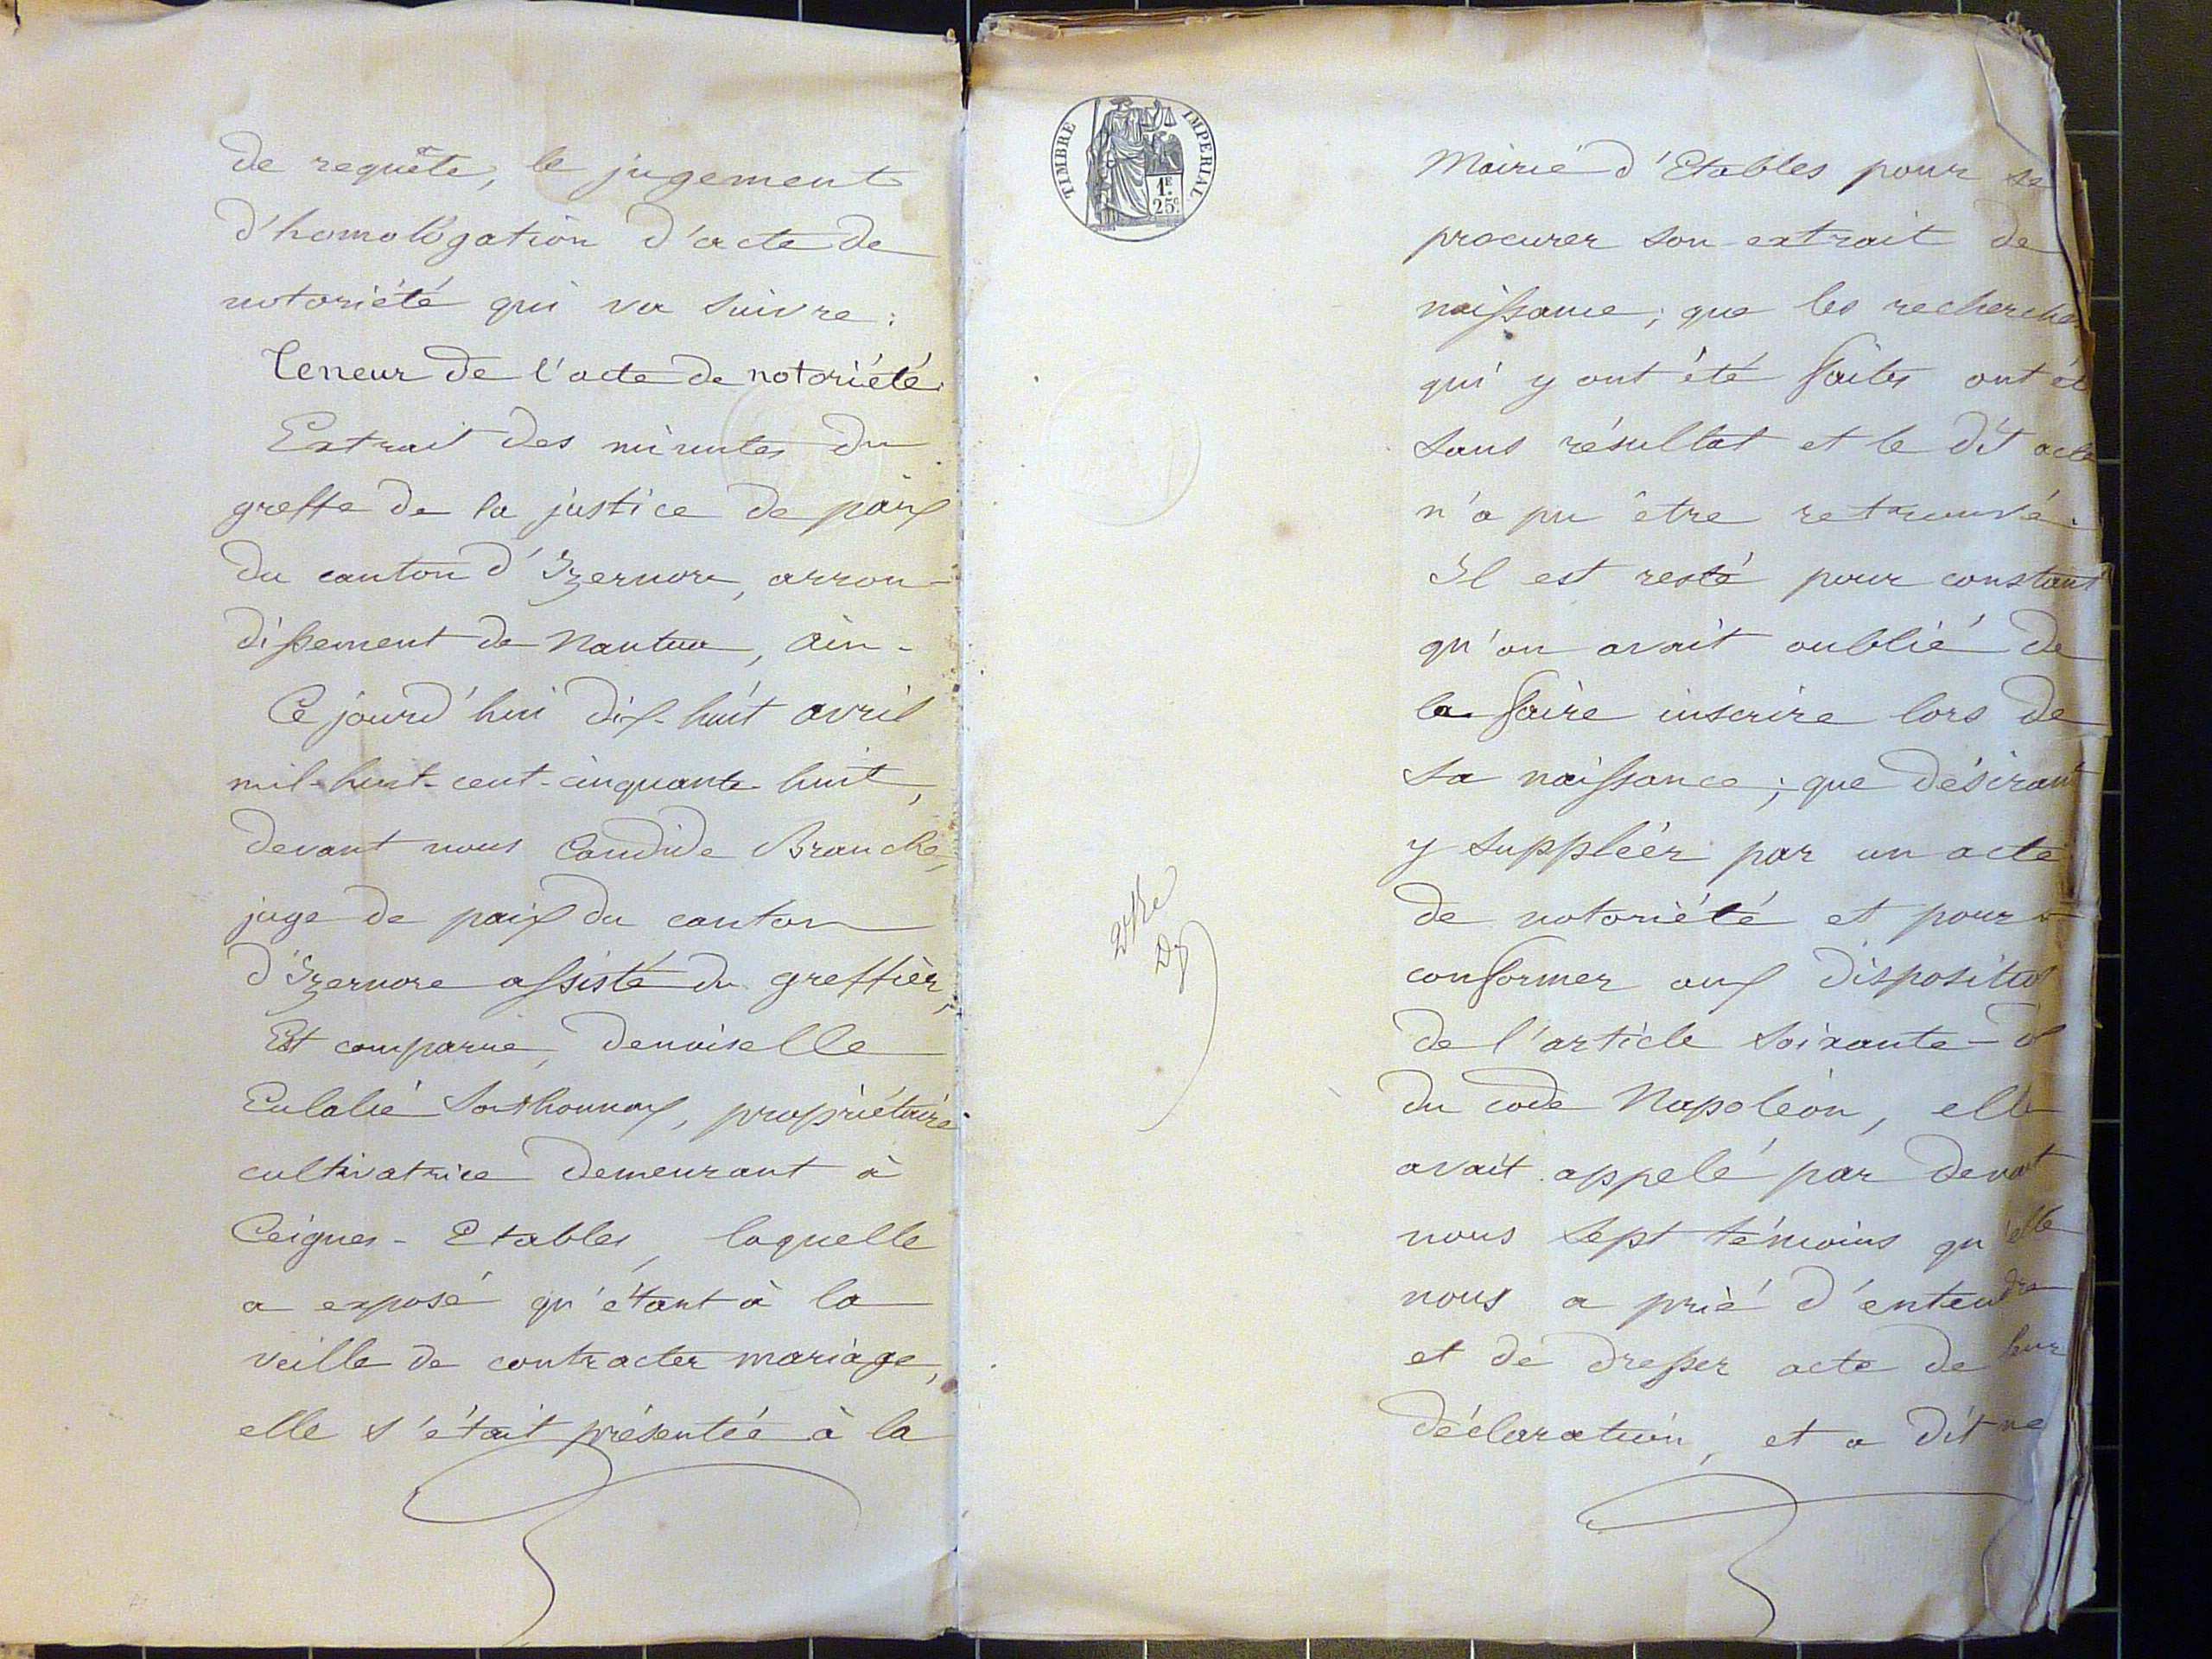 de requête, le jugement
d'homologation d'acte de
notoriété qui va suivre :
Teneur de l'acte de notoriété.
Extrait des minutes du
greffe de la justice de paix
du canton d'Izernore, arron-
dissement de Nantua, Ain -
Ce jourd'hui dix-huit avril
mil-huit-cent-cinquante-huit,
devant nous Candide Branche,
juge de paix du canton
d'Izernore assisté du greffier,
Est comparue, demoiselle
Eulalie Sonthonnax, propriétaire
cultivatrice demeurant à
Ceignes-Etables, laquelle
a exposé qu'étant à la
veille de contracter mariage,
elle s'était présentée à la
TIMBRE IMPERIAL
1F.
25c.
Mairie d'Etables pour se
procurer son extrait de
naissance ; que les recherches
qui y ont été faites ont ét
sans résultat et le dit acte
n'a pu être retrouvé.
Il est resté pour constant
qu'on avait oublié de
la faire inscrire lors de
sa naissance ; que désirant
y suppléer par un acte
de notoriété et pour
conformer aux disposit
de l'article soixante-d
du code Napoléon, elle
avait appelé par devant
nous sept témoins qu'elle
nous a prié d'entendre
et de dresser acte de leur
déclaration, et a dit ne